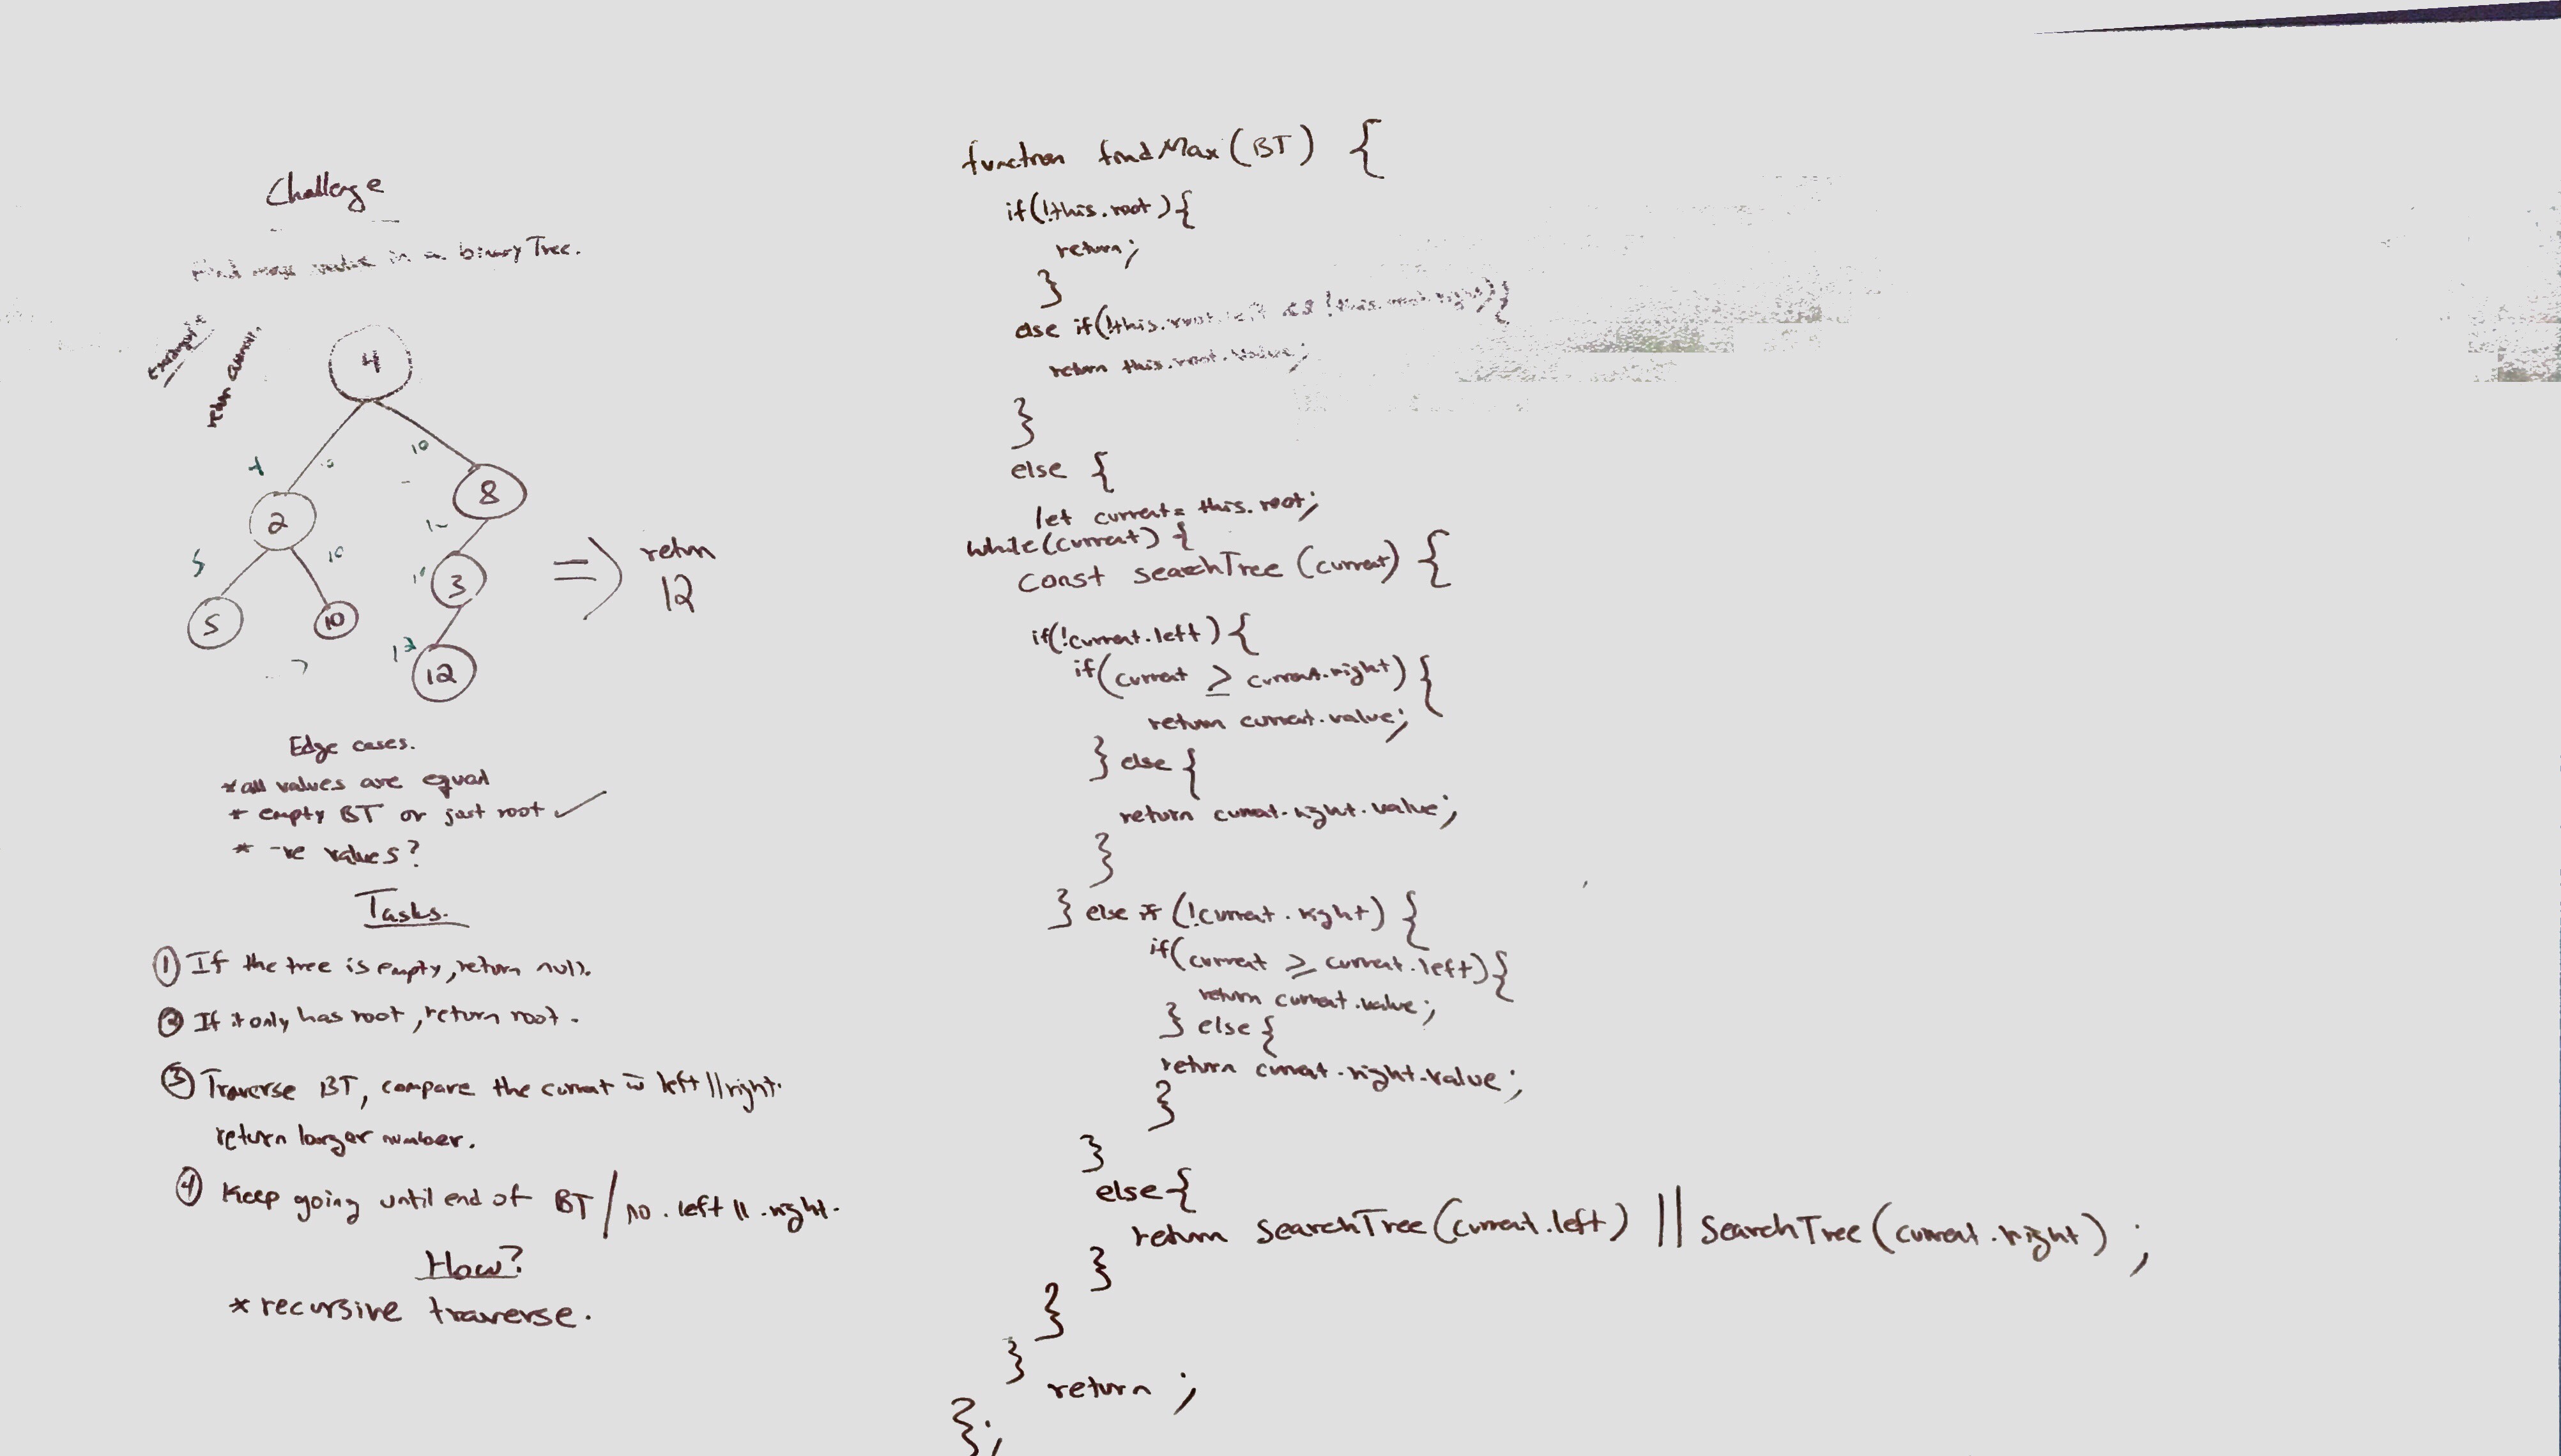 Challenge
Find max value in a binary Tree.
example
return
4
10
2
8
5
10
3
5
10
12
12
=> return
12
Edge cases.
* all values are equal
* empty BT or just root ✓
* -ve values?
Tasks.
① If the tree is empty, return null.
② If it only has root, return root.
③ Traverse BT, compare the current w̄ left || right.
return larger number.
④ Keep going until end of BT / no .left || .right.
How?
* recursive traverse.
function findMax (BT) {
if (!this.root) {
return;
}
else if (!this.root.left && !this.root.right) {
return this.root.value;
}
else {
let current = this.root;
while (current) {
const searchTree (current) {
if (!current.left) {
if (current ≥ current.right) {
return current.value;
} else {
return current.right.value;
}
} else if (!current.right) {
if (current ≥ current.left) {
return current.value;
} else {
return current.right.value;
}
}
else {
return searchTree (current.left) || searchTree (current.right) ;
}
}
}
return ;
};